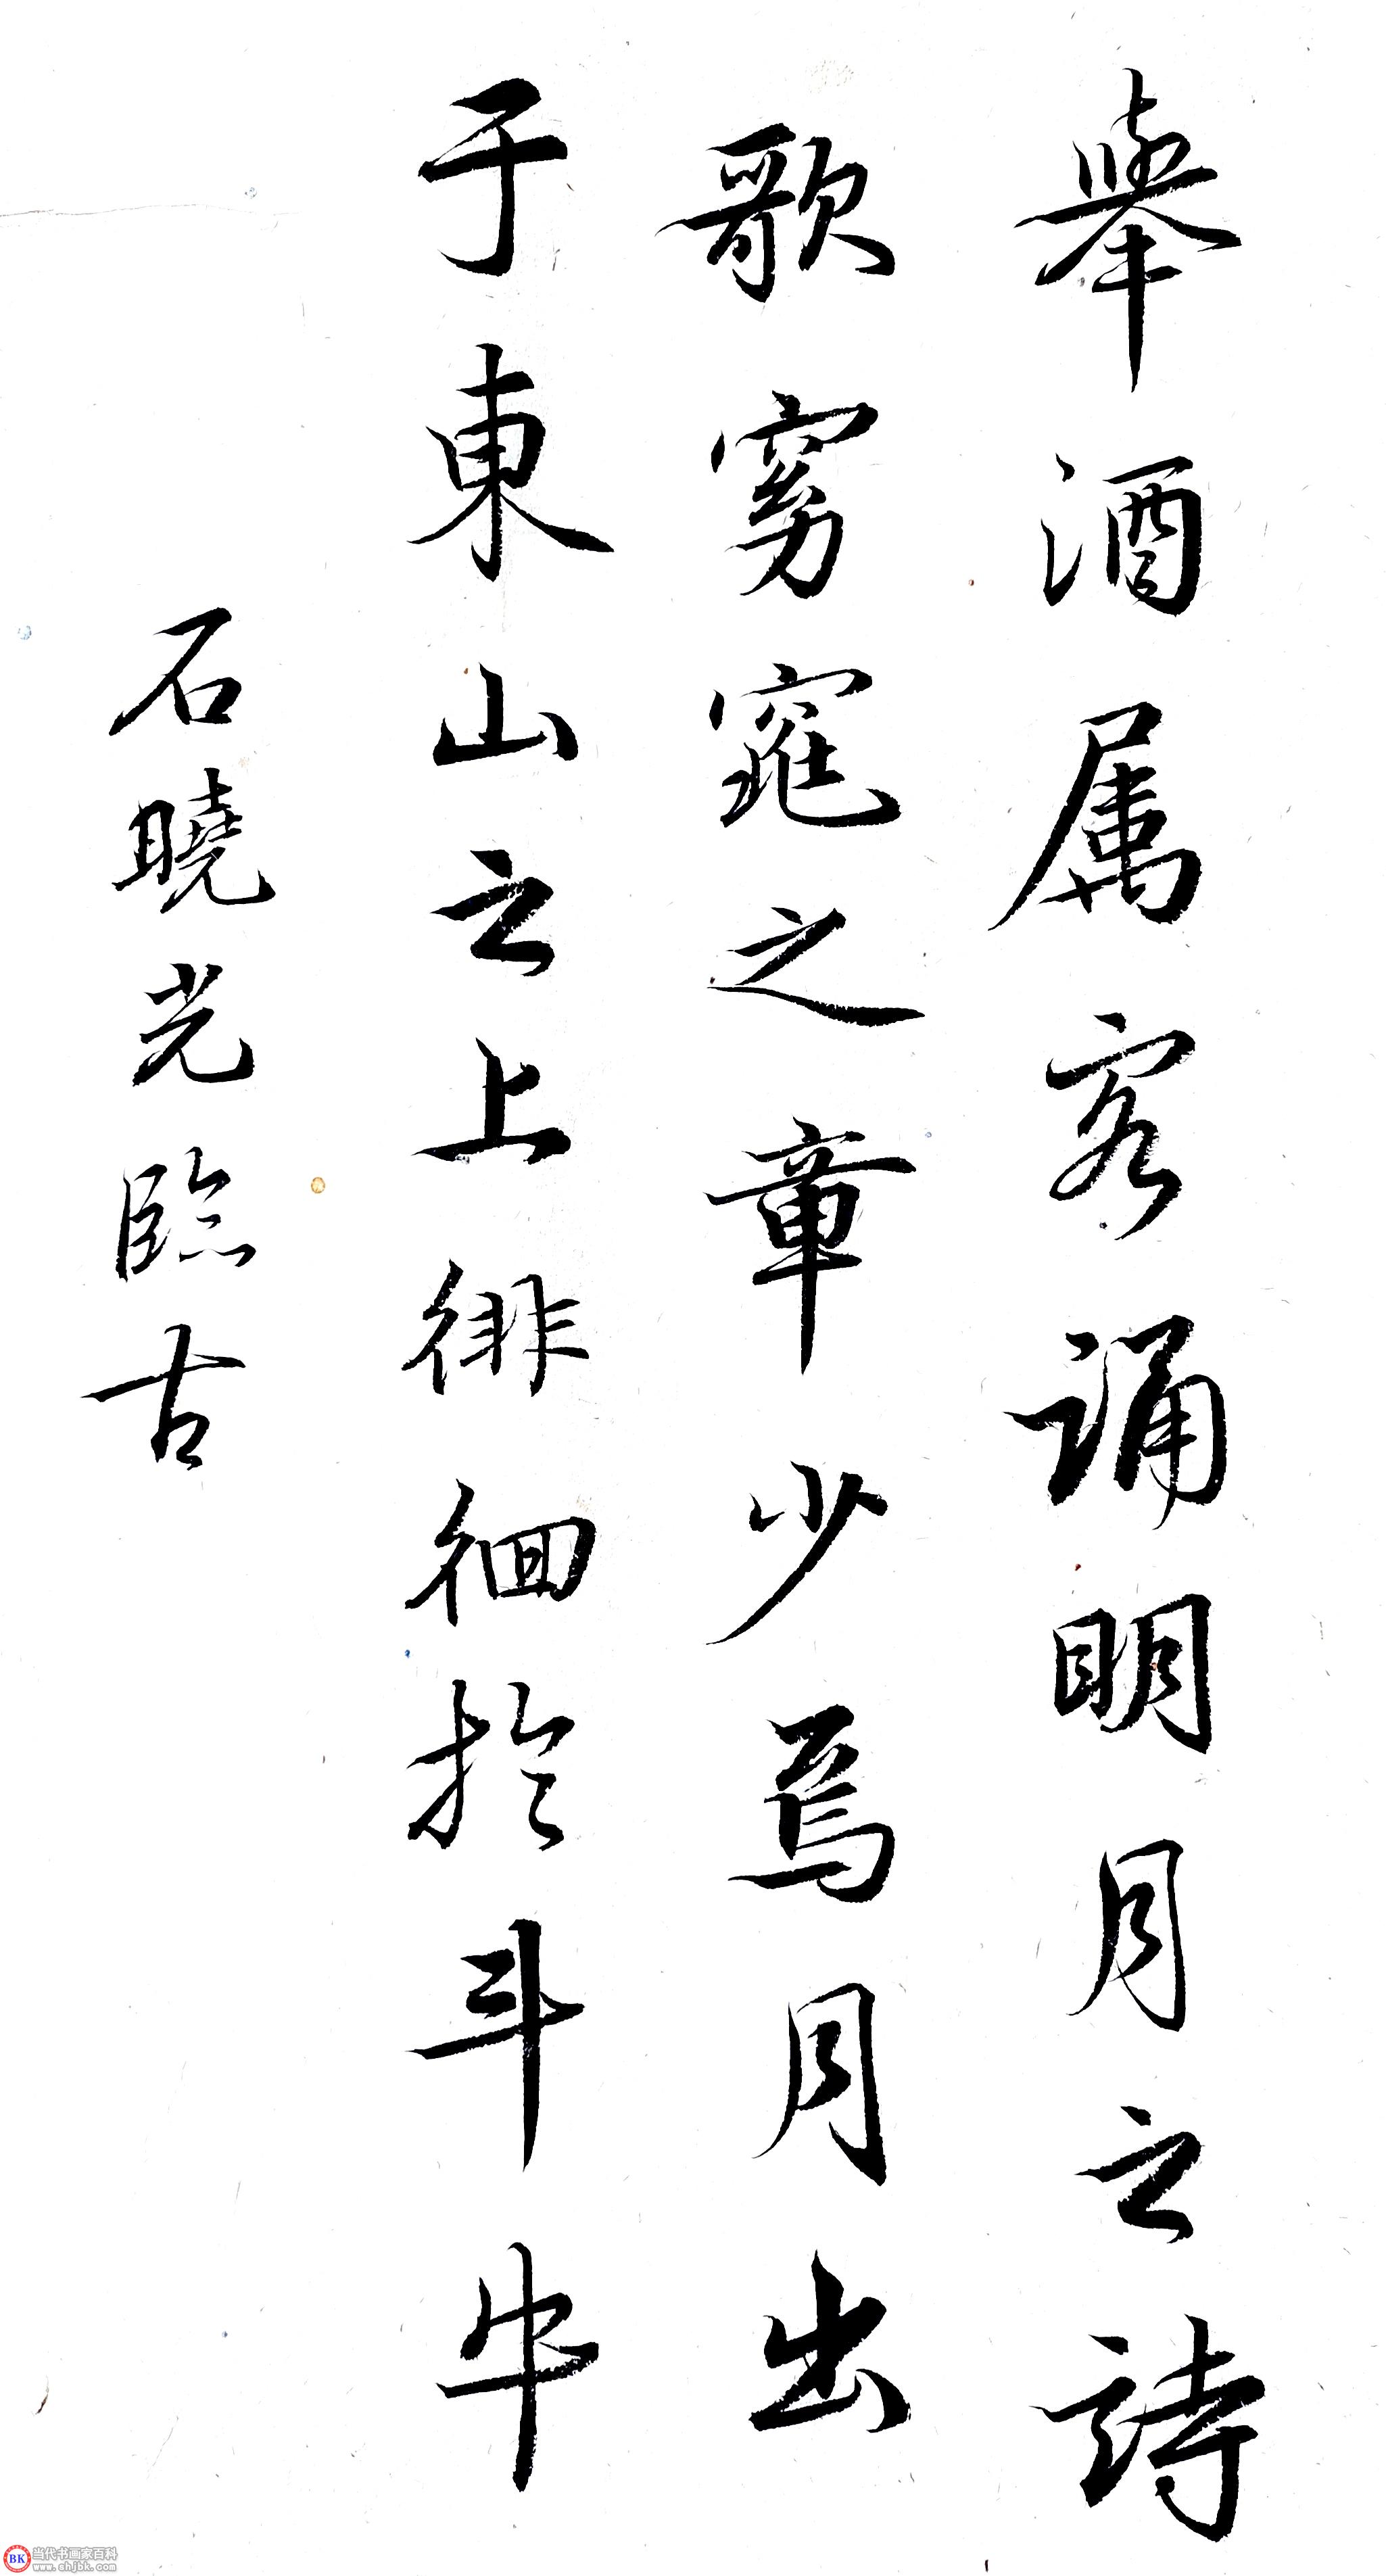 舉酒属客誦明月之詩
歌窈窕之章少焉月出
于東山之上徘徊於斗牛
石曉光臨古
BK 当代书画家百科
www.shjbk.com